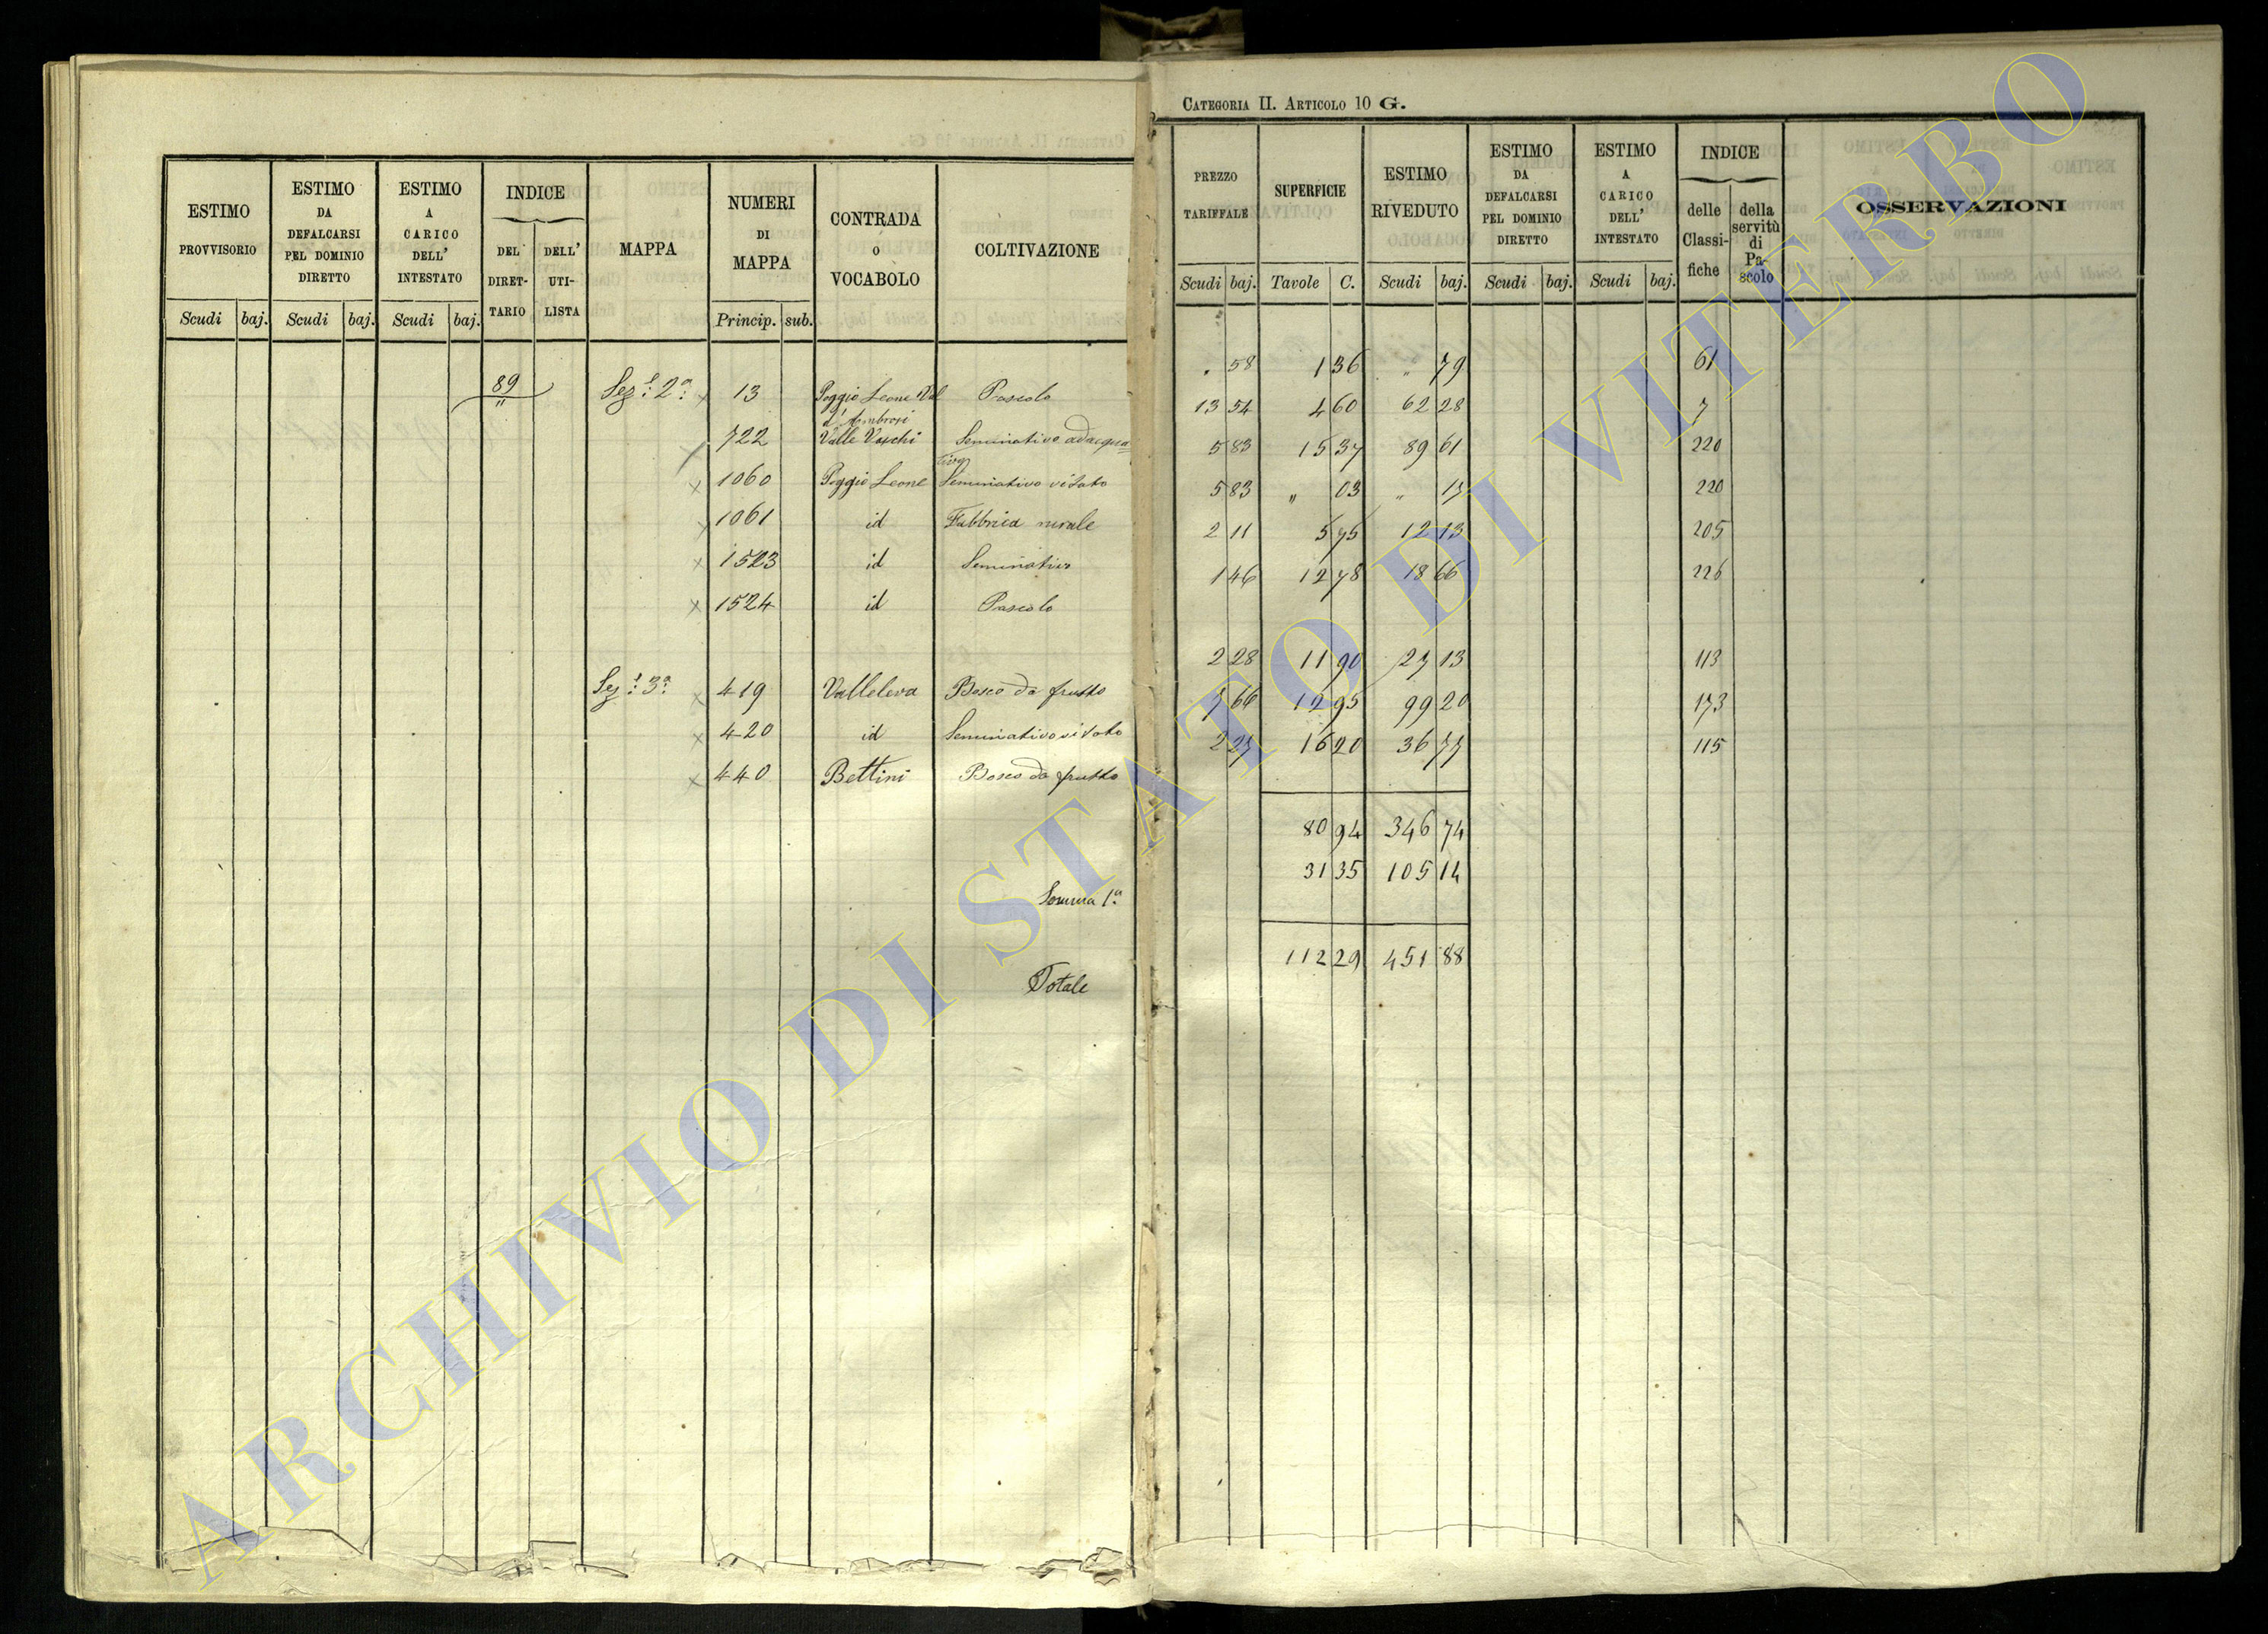 CATEGORIA II. ARTICOLO 10 G.
ESTIMO PROVVISORIO
ESTIMO DA DEFALCARSI PEL DOMINIO DIRETTO
ESTIMO A CARICO DELL' INTESTATO
INDICE
DEL DIRETTARIO
DELL' UTILISTA
MAPPA
NUMERI DI MAPPA
CONTRADA O VOCABOLO
COLTIVAZIONE
Scudi baj. Scudi baj. Scudi baj. Princip. sub.
PREZZO TARIFFALE
SUPERFICIE
ESTIMO RIVEDUTO
ESTIMO DA DEFALCARSI PEL DOMINIO DIRETTO
ESTIMO A CARICO DELL' INTESTATO
INDICE
delle Classifiche
della servitù di Pascolo
OSSERVAZIONI
Scudi baj. Tavole C. Scudi baj. Scudi baj. Scudi baj.
89 Sez. 2a 13 Poggio Leone Val d'Ambrosi Pascolo
722 Valle Vaschi Seminativo adacquativo
1060 Poggio Leone Seminativo vitato
1061 id Fabbrica rurale
1523 id Seminativo
1524 id Pascolo
Sez. 3a 419 Valleleva Bosco da frutto
420 id Seminativo vitato
440 Bettini Bosco da frutto
Somma 1a
Totale
" 58 1 36 " 79 61
13 54 4 60 62 28 7
5 83 15 37 89 61 220
5 83 " 03 " 17 220
2 11 5 75 12 13 205
1 46 12 78 18 66 226
2 28 11 90 27 13 113
7 66 12 95 99 20 173
2 27 16 20 36 77 115
80 94 346 74
31 35 105 14
112 29 451 88
ARCHIVIO DI STATO DI VITERBO